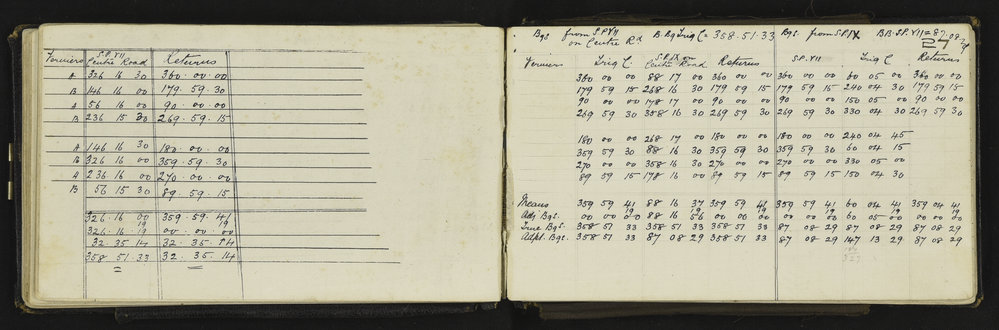 Verniers S.P. VII Centre Road Returns
A 326 16 30 360 . 00 . 00
B 146 16 00 179 . 59 . 30
A 56 16 00 90 . 00 . 00
B 236 15 30 269 . 59 . 15
A 146 16 30 180 . 00 . 00
B 326 16 00 359 . 59 . 30
A 236 16 00 270 . 00 . 00
B 56 15 30 89 . 59 . 15
326 . 16 00 359 . 59 . 41
19 19
326 . 16 . 19 00 . 00 . 00
32 . 35 14 32 . 35 . 14
358 51 . 33 32 . 35 . 14
Bgs from S.P. VII on Centre Rd B. Bg Trig C = 358 . 51 . 33 Bgs from S.P. IX B.B. S.P. VII = 87 . 08 . 29
27
Verniers Trig C. S.P. IX on Centre Road Returns S.P. VII Trig C. Returns
360 00 00 88 17 00 360 00 00 360 00 00 60 05 00 360 00 00
179 59 15 268 16 30 179 59 15 179 59 15 240 04 30 179 59 15
90 00 00 178 17 00 90 00 00 90 00 00 150 05 00 90 00 00
269 59 30 358 16 30 269 59 30 269 59 30 330 04 30 269 59 30
180 00 00 268 17 00 180 00 00 180 00 00 240 04 45
359 59 30 88 16 30 359 59 30 359 59 30 60 04 15
270 00 00 358 16 30 270 00 00 270 00 00 330 05 00
89 59 15 178 16 00 89 59 15 89 59 15 150 04 30
Means 359 59 41 88 16 37 359 59 41 359 59 41 60 04 41 359 04 41
19 19 19 19 19 19
Adj Bgs. 00 00 00 88 16 56 00 00 00 00 00 00 60 05 00 00 00 00
True Bgs. 358 51 33 358 51 33 358 51 33 87 08 29 87 08 29 87 08 29
Adpt. Bgs. 358 51 33 87 08 29 358 51 33 87 08 29 147 13 29 87 08 29